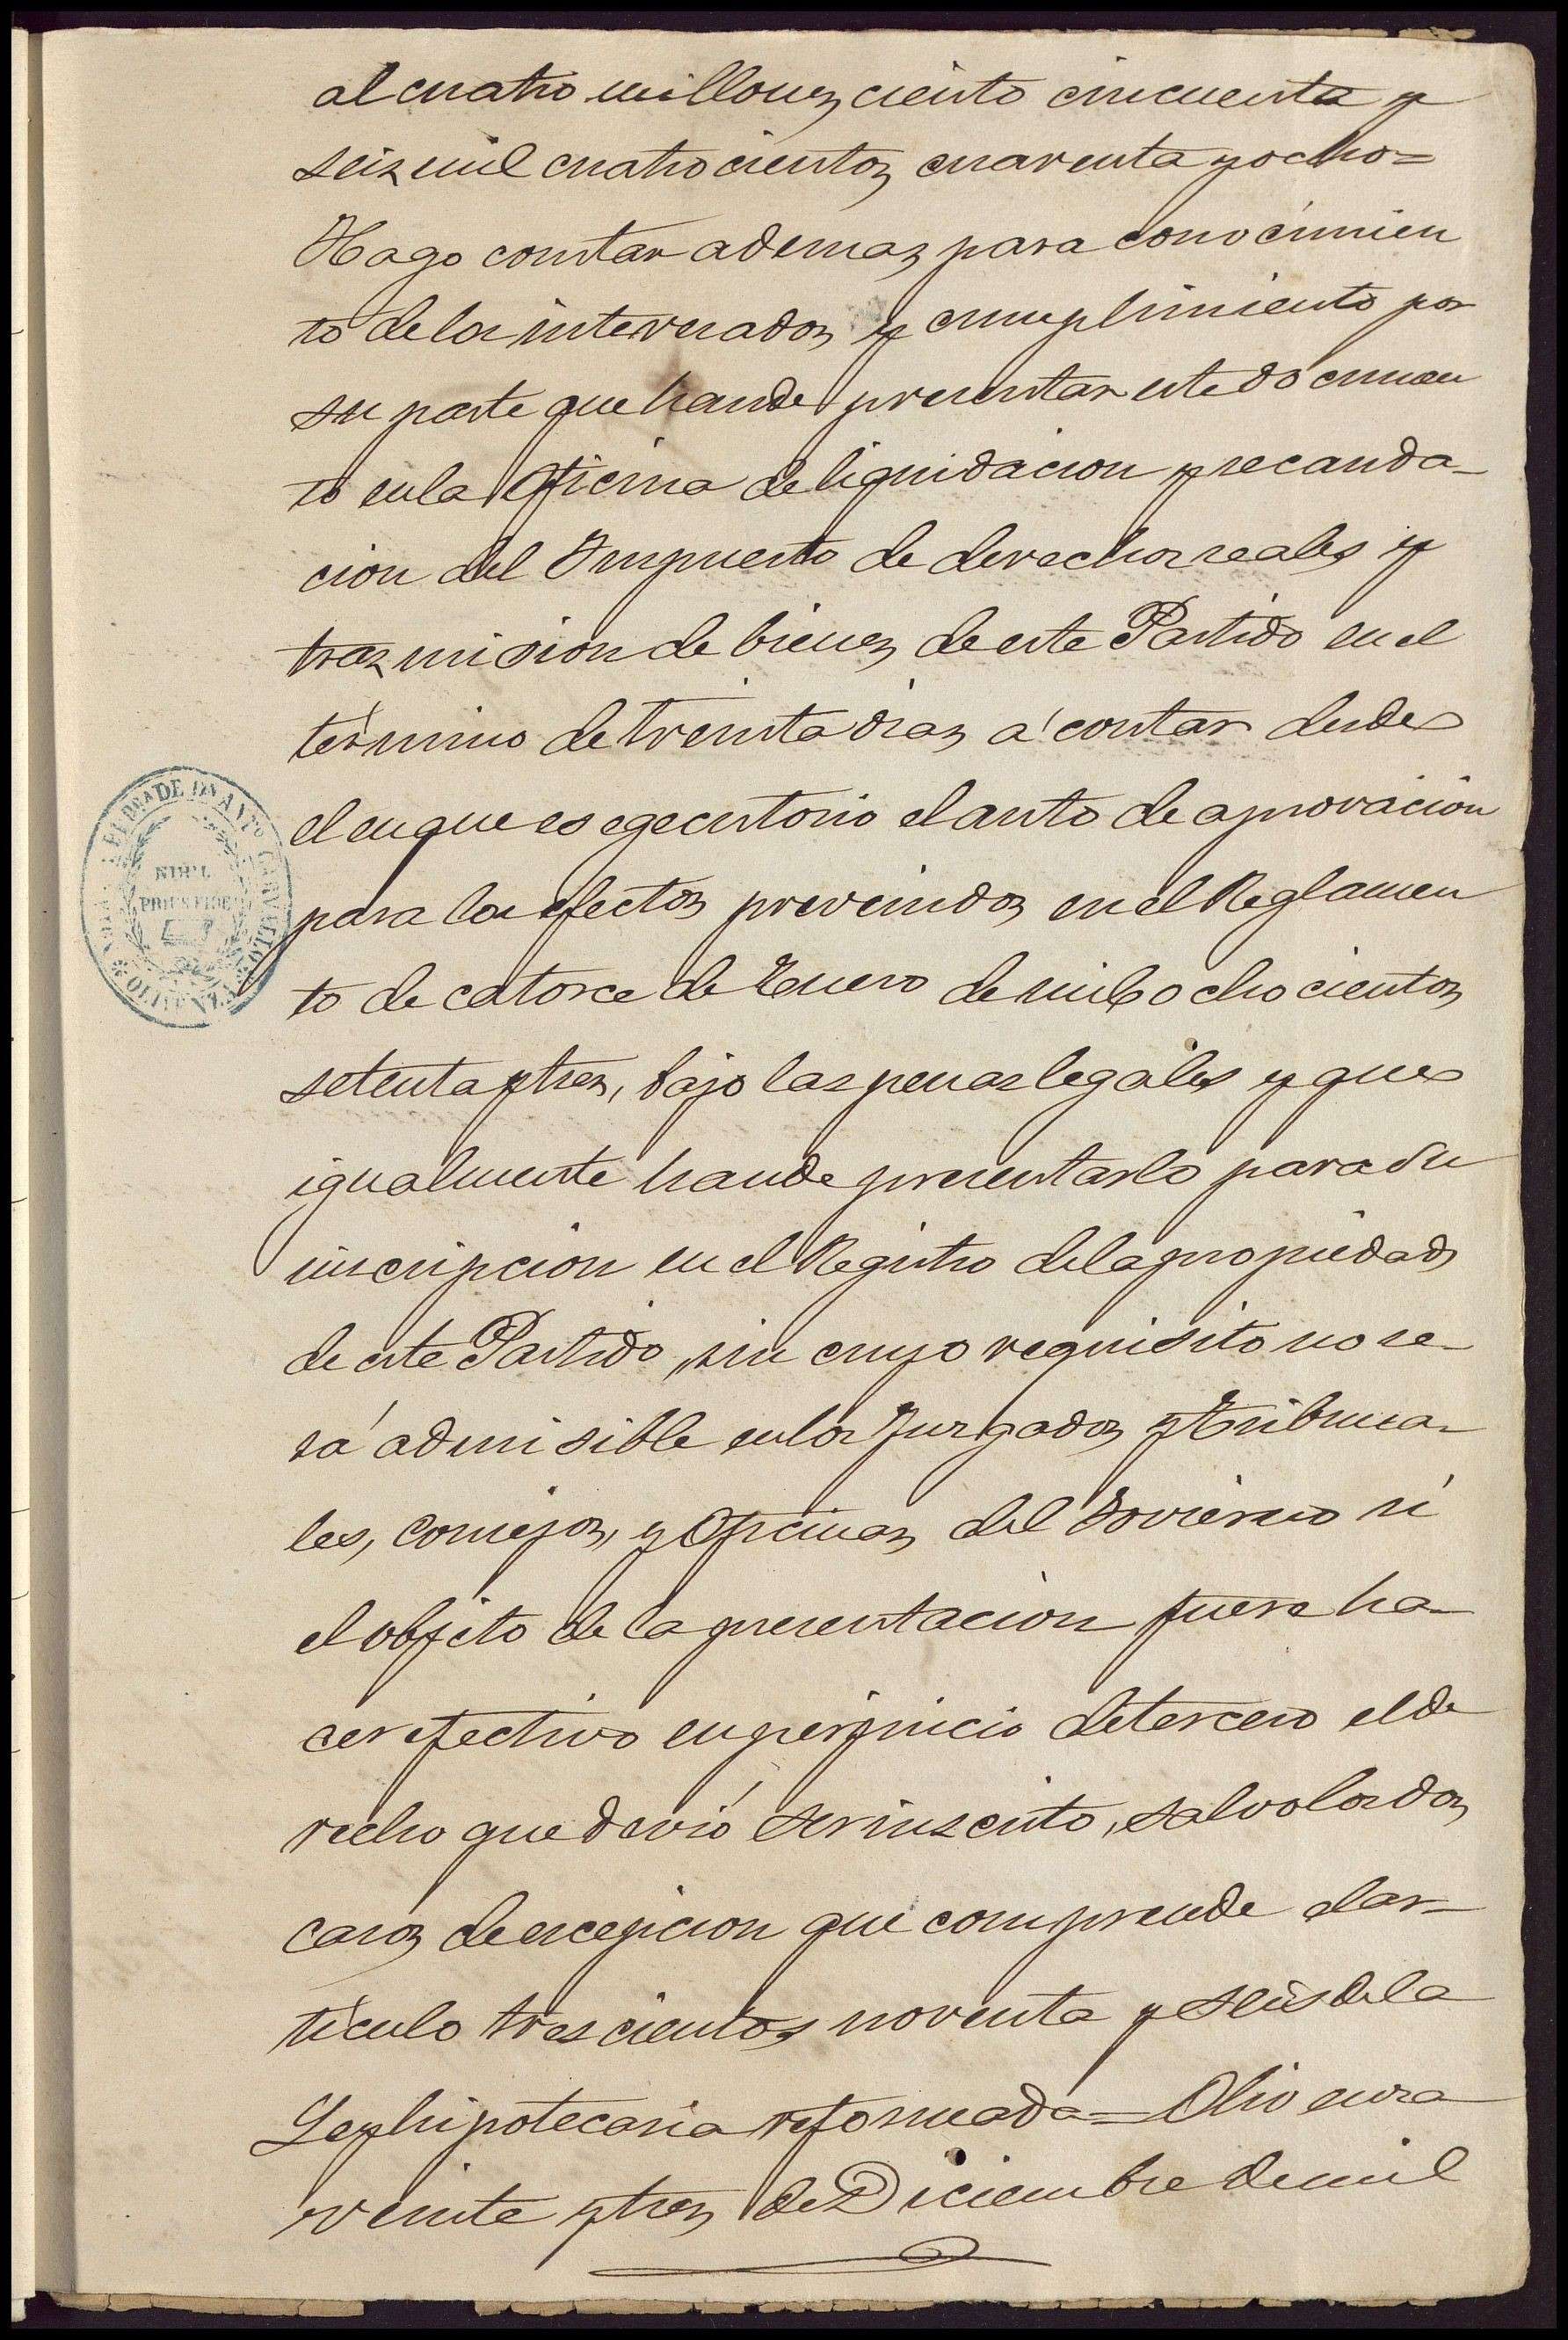 al cuatro millones ciento cincuenta y
seis mil cuatrocientos cuarenta y ocho=
Hago constar ademas para conocimien
to de los interesados y cumplimiento por
su parte que han de presentar este documen
to en la Oficina de liquidacion y recauda-
cion del Impuesto de derechos reales y
trasmision de bienes de este Partido en el
término de treinta dias á contar desde
el en que es egecutorio el auto de aprovacion
para los efectos prevenidos en el Reglamen
to de catorce de Enero de mil ochocientos
setenta y tres, bajo las penas legales y que
igualmente han de presentarlo para su
inscripcion en el Registro de la propiedad
de este Partido, sin cuyo requisito no se-
rá admisible en los Juzgados y Tribuna-
les, consejos, y Oficinas del Govierno si
el objeto de la presentacion fuere ha-
cer efectivo en perjuicio de tercero el de
recho que devió ser inscrito, salvo los dos
casos de escepcion que comprende el ar-
tículo trescientos noventa y seis de la
Ley hipotecaria reformada= Olivenza
veinte y tres de Diciembre de mil
NIHIL
PRIUS FIDE
OLIVENZA